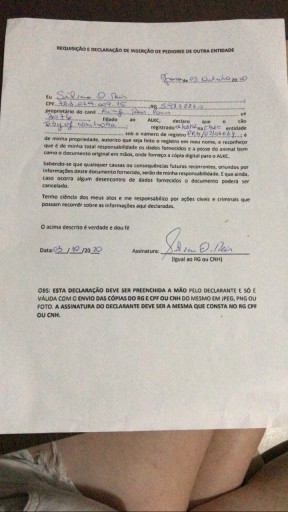 REQUISIÇÃO E DECLARAÇÃO DE INSERÇÃO DE PEDIGREE DE OUTRA ENTIDADE
03 Outubro 2020
Eu Silvano D. Reis
CPF RG
proprietário do canil nº
filiado ao AUKC, declaro que o cão
registrado entidade
sob o número de registro é
de minha propriedade, autorizo que seja feito o registro em meu nome, e reconheço
que é de minha total responsabilidade os dados fornecidos e a posse do animal bem
como o documento original em mãos, onde forneço a cópia digital para o AUKC.
Sabendo-se que quaisquer causas ou consequências futuras recorrentes, oriundos por
informações deste documento fornecido, serão de minha responsabilidade. E que ainda,
caso ocorra algum desencontro de dados fornecidos o documento poderá ser
cancelado.
Tenho ciência dos meus atos e me responsabilizo por ações cíveis e criminais que
possam recorrer sobre as informações aqui declaradas.
O acima descrito é verdade e dou fé
Data: 03 / 10 /2020 Assinatura: Silvano D. Reis
(Igual ao RG ou CNH)
OBS: ESTA DECLARAÇÃO DEVE SER PREENCHIDA A MÃO PELO DECLARANTE E SÓ É
VÁLIDA COM O ENVIO DAS CÓPIAS DO RG E CPF OU CNH DO MESMO EM JPEG, PNG OU
FOTO. A ASSINATURA DO DECLARANTE DEVE SER A MESMA QUE CONSTA NO RG CPF
OU CNH.